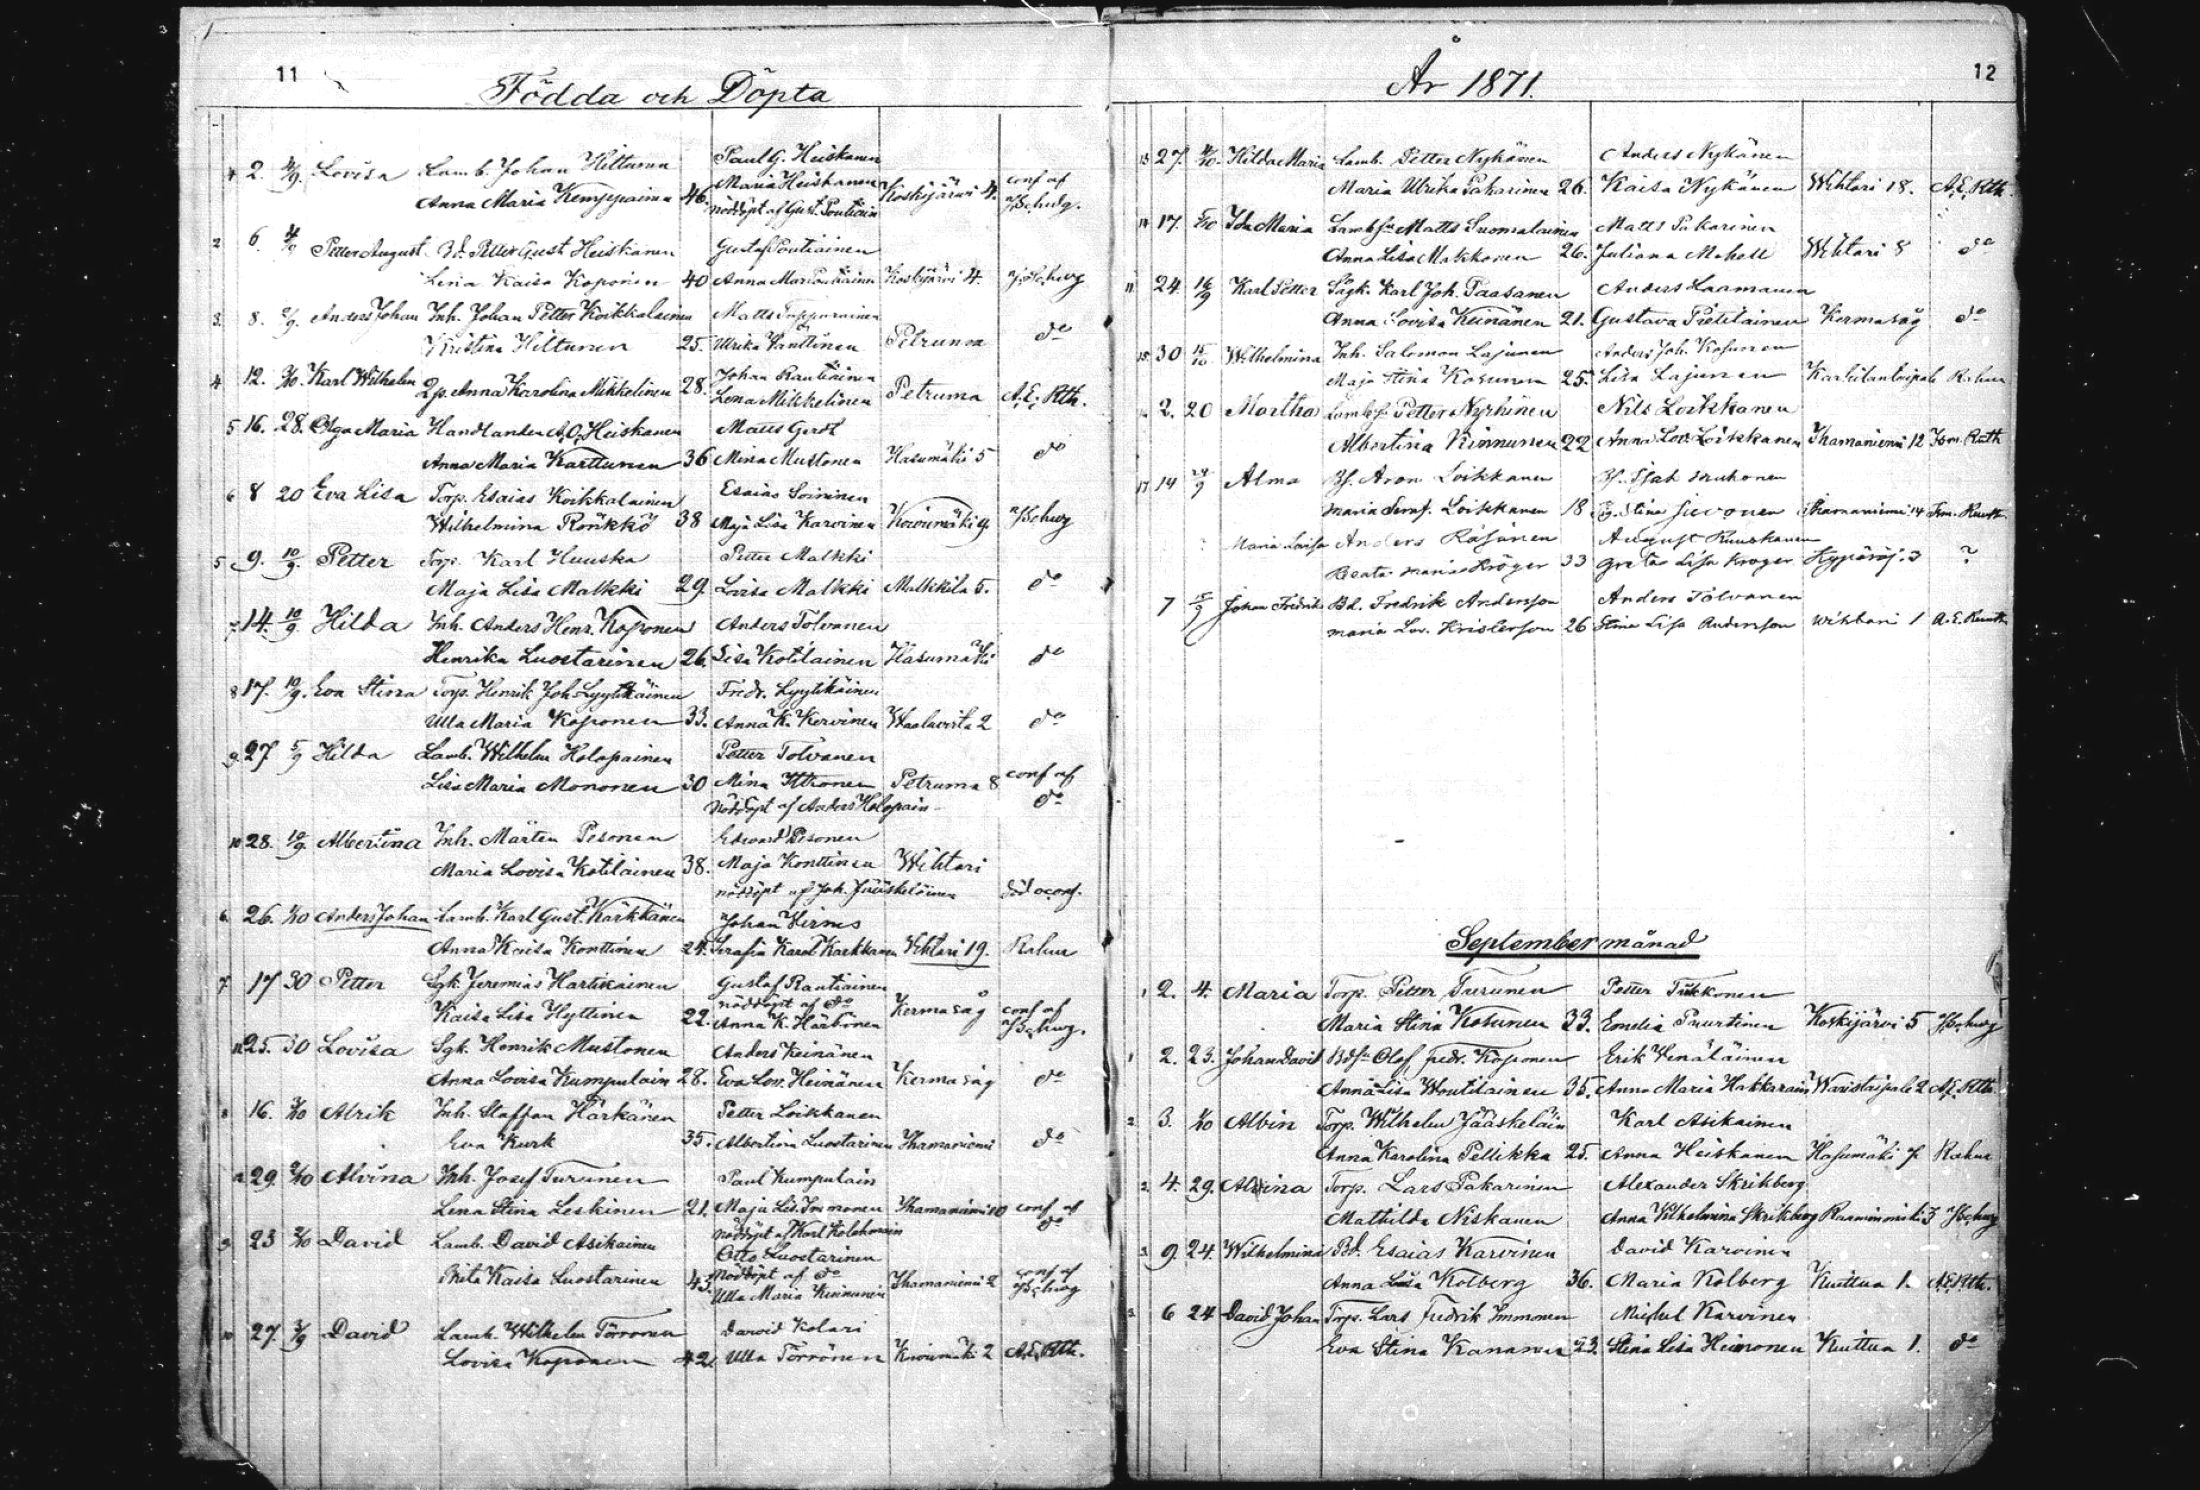 11
Födda och Döpta
2. 4/9. Lovisa Lamb. Johan Hiltunen Paul G. Heiskanen
Anna Maria Kemppainen 46. Maria Heiskanen Koskijärvi 4. conf af
nöddöpt af Gust. Pontiain
2 6. Petter August Bd. Petter Gust Heiskanen Gustaf Pontiainen
Lena Kaisa Koponen 40 Anna Mar Pontiainen Koskijärvi 4.
3. 8. Anders Johan Inh. Johan Petter Koikkalainen Matts Tapparainen
Kristina Hiltunen 25. Ulrika Vänttinen Petruma do
4 12. Karl Wilhelm Qp. Anna Karolina Mikkelinen 28. Johan Rautiainen
Lena Mikkelinen Petruma A. E. Rth.
5 16. 28. Olga Maria Handlanden A. O. Heiskanen Matts Gerdt
Anna Maria Karttunen 36 Mina Mustonen Hasumäki 5 do
6 8 20 Eva Lisa Torp. Esaias Koikkalainen Esaias Soininen
Wilhelmina Rönkkö 38 Maja Lisa Karvinen Kovumäki 9.
5 9. 10/9. Petter Torp. Karl Huuska Petter Malkki
Maja Lisa Malkki 29. Lovisa Malkki Malkkila 5. do
14. 10/9. Hilda Inh. Anders Henr. Koponen Anders Tolvanen
Henrika Luostarinen 26. Lisa Kotilainen Hasumäki do
8 17. 10/9. Eva Stina Torp. Henrik Joh. Lyytikäinen Fredr. Lyytikäinen
Ulla Maria Koponen 33. Anna K. Kervinen Waaluvirta 2 do
9. 27 5/9 Hilda Lamb. Wilhelm Holopainen Petter Tolvanen
Lisa Maria Mononen 30 Mina Ikonen Petruma 8 conf af
nöddöpt af Anders Holopain do
10 28. 10/9. Albertina Inh. Mårten Pesonen Edvard Pesonen
Maria Lovisa Kotilainen 38. Maja Konttinen Wihtari
nöddöpt af Joh. Jääskeläinen
6. 26. 1/10 Anders Johan Lamb. Karl Gust. Karkkänen Johan Hirves
Anna Kaisa Konttinen 24. Serafia Karol Karkkanen Vihtari 19. Rahm
7 17 30 Petter Sgk. Jeremias Hartikainen Gustaf Rautiainen
nöddöpt af do
Kaisa Lisa Hyttinen 22. Anna K. Härkönen Kermasåg conf af
11 25. 30 Lovisa Sgk. Henrik Mustonen Anders Keinänen
Anna Lovisa Kumpulain 28. Eva Lov. Heinänen Kermasåg do
8 16. Alrik Inh. Staffan Härkänen Petter Loikkanen
Eva Kurk 35. Albertina Luostarinen Ihamaniemi do
12 29. 2/10 Alvina Inh. Josef Turunen Paul Kumpulain
Lena Stina Leskinen 21. Maja Lis. Immonen Ihamaniemi 10 conf af
nöddöpt af Karl Kolehmain do
9 23 2/10 David Lamb. David Asikainen Otto Luostarinen
nöddöpt af do
Brita Kaisa Luostarinen 43. Ulla Maria Kinnunen Ihamaniemi 2 conf af
10 27. 3/9 David Lamb. Wilhelm Törrönen David Kolari
Lovisa Koponen 42. Ulla Törrönen Kovumäki 2 A. E. Rth.
År 1871.
12
13 27. 4/10. Hilda Maria Lamb. Petter Nykänen Anders Nykänen
Maria Ulrika Pakarinen 26. Kaisa Nykänen Wihtari 18. A. E. Rth.
14 17. Ida Maria Lamb Matts Suomalainen Matts Pakarinen
Anna Lisa Makkonen 26. Juliana Mahell Wihtari 8 do
11 24. 16/9 Karl Petter Sågk. Karl Joh. Paasanen Anders Laamanen
Anna Lovisa Keinänen 21. Gustava Pietilainen Kermasåg do
15 30 15/10 Wilhelmina Inh. Salomon Lajunen Anders Joh. Kosunen
Maja Stina Kosunen 25. Lisa Lajunen Karhilantaipale Rahm
2. 20 Martha Petter Nyrhinen Nils Loikkanen
Albertina Kinnunen 22 Anna Lov. Loikkanen Ihamaniemi 12
17 14 24/9 Alma Bf. Aron Loikkanen Bf. Isak Muhonen
Maria Seraf. Loikkanen 18 Stina Sivonen Ihamaniemi 14
Maria Lovisa Anders Räsänen August Kuuskanen
Beata Maria Kröger 33 Greta Lisa Kroger 3 ?
7 15/9 Johan Fredrik Bd. Fredrik Andersson Anders Tolvanen
Maria Lov. Kristerson 26 Stina Lisa Andersson Wihtari 1 A. E. Ruuth
September månad
1 2. 4. Maria Torp. Petter Turunen Petter Tukkonen
Maria Stina Kosunen 33. Emelia Puurtinen Koskijärvi 5
1 2. 23. Johan David Olof Fredr. Koponen Erik Venäläinen
Anna Lisa Woutilainen 35. Anna Maria Hakkarain Waristaipale 2 A. E. Rth.
2 3. 1/10 Albin Torp. Wilhelm Jääskeläin Karl Asikainen
Anna Karolina Pellikka 25. Anna Heiskanen Hasumäki 7. Rahm
2. 4. 29. Alvina Torp. Lars Pakarinen Alexander Skrikberg
Mathilda Niskanen Anna Wilhelmina Skrikberg 3
3. 9. 24. Wilhelmina Bd. Esaias Karvinen David Karvinen
Anna Lisa Kolberg 36. Maria Kolberg Kuittua 1. A. E. Rth.
3. 6 24 David Johan Torp. Lars Fredrik Immonen Michel Karvinen
Eva Stina Kananen 23. Stina Lisa Heimonen Kuittua 1. do